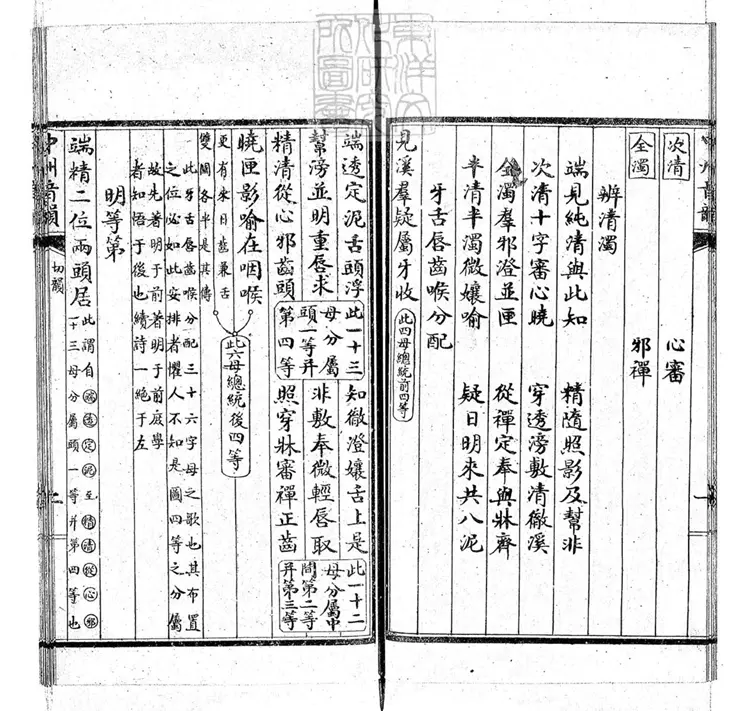 次清 心審
全濁 邪禪
辨清濁
端見純清與此知 精隨照影及幫非
次清十字審心曉 穿透滂敷清徹溪
全濁羣邪澄並匣 從禪定奉與牀齊
半清半濁微孃喻 疑日明來共八泥
牙舌唇齒喉分配
見溪羣疑屬牙收 此四母總統前四等
端透定泥舌頭浮 此一十三 知徹澄孃舌上是 此一十二
幫滂並明重唇求 母分屬頭一等并 非敷奉微輕唇取 母分屬中間第二等
精清從心邪齒頭 第四等 照穿牀審禪正齒 并第三等
曉匣影喻在咽喉 此六母總統後四等
更有來日齒兼舌
雙圖各半是其儔
此牙舌唇齒喉分配三十六字母之歌也其布置
之位必如此安排者懼人不知是圖四等之分屬
故先著明于前著明于前庶學
者知悟于後也續詩一絕于左
明等第
端精二位兩頭居 此謂自端透定泥至精清從心邪
一十三母分屬頭一等并第四等也
中州音韻 切韻 二